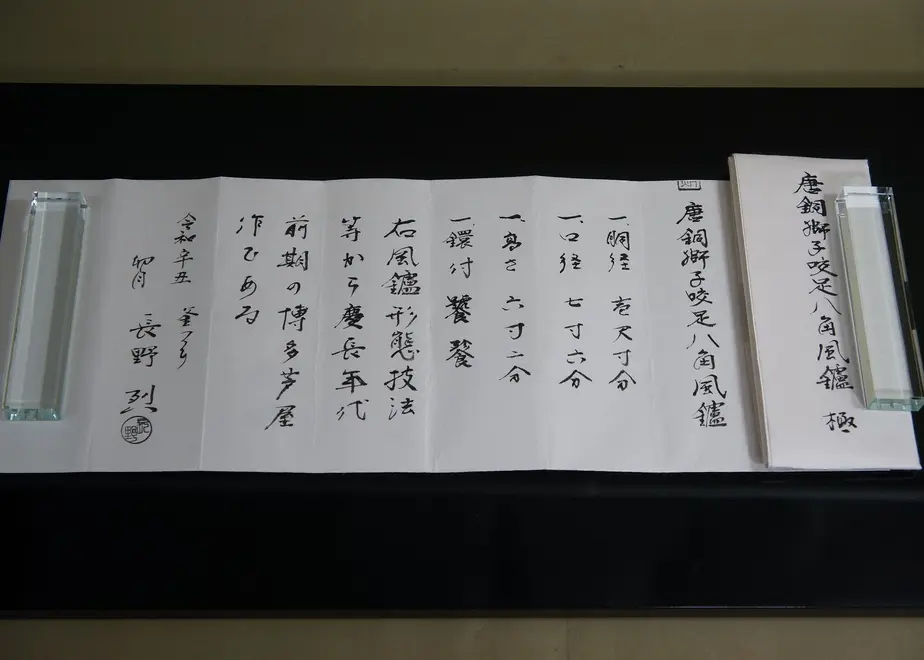 唐銅獅子咬足八角風鑪 極
唐銅獅子咬足八角風鑪
一、胴径 壱尺寸分
一、口径 七寸六分
一、高さ 六寸二分
一、鐶付 饕餮
右風鑪形態技法
等から慶長年代
前期の博多芦屋
作である
令和辛丑 釜つくり
卯月 長野 烈